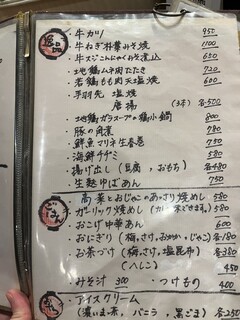 ・牛カツ 950
・牛ねぎ朴葉みそ焼 1100
・牛スジこんにゃくみそ煮込 650
・地鶏ムネ肉たたき 720
・若鶏もも肉天塩焼 600
・手羽先 塩焼
唐揚 (3本) 各500
・地鶏ガラスープの鶏小鍋 800
・豚の角煮 780
・鮮魚マリネ生春巻 750
・海鮮チヂミ 580
・揚げ出し (豆腐、おもち) 各480
・生麩ゆばあん 750
・高菜とおじゃこのあっさり焼めし 580
・ガーリック焼めし 580
・おこげ中華あん 600
・おにぎり (梅、さけ、おかか、じゃこ) 各180
・お茶づけ (梅、さけ、塩昆布) 各380
(へしこ) 450
・みそ汁 300 ・つけもの 400
・アイスクリーム
(濃いま茶、バニラ、黒ごま) 各250